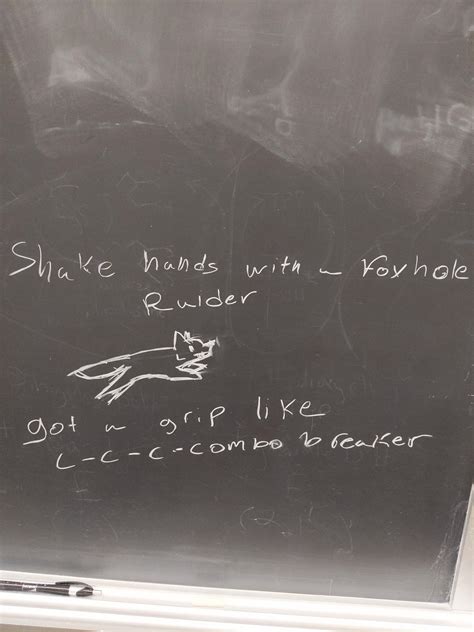 Shake hands with a Foxhole
Raider
got a grip like
c-c-c-combo breaker